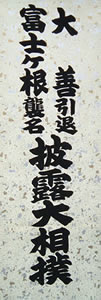 大善引退
富士ケ根襲名
披露大相撲